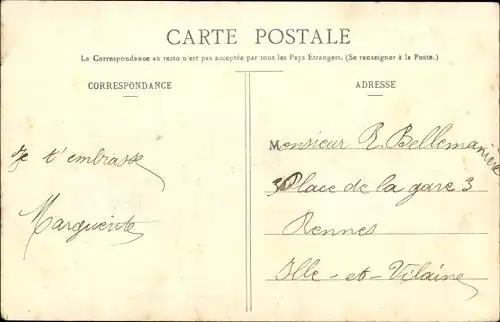 CARTE POSTALE
La Correspondance au recto n'est pas acceptée par tous les Pays Étrangers. (Se renseigner à la Poste.)
CORRESPONDANCE
Je t'embrasse
Marguerite
ADRESSE
Monsieur R. Bellemanière
3 Place de la gare 3
Rennes
Ille-et-Vilaine